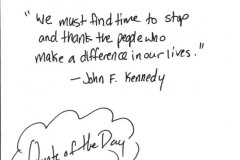 "We must find time to stop
and thank the people who
make a difference in our lives."
— John F. Kennedy
Quote of the Day